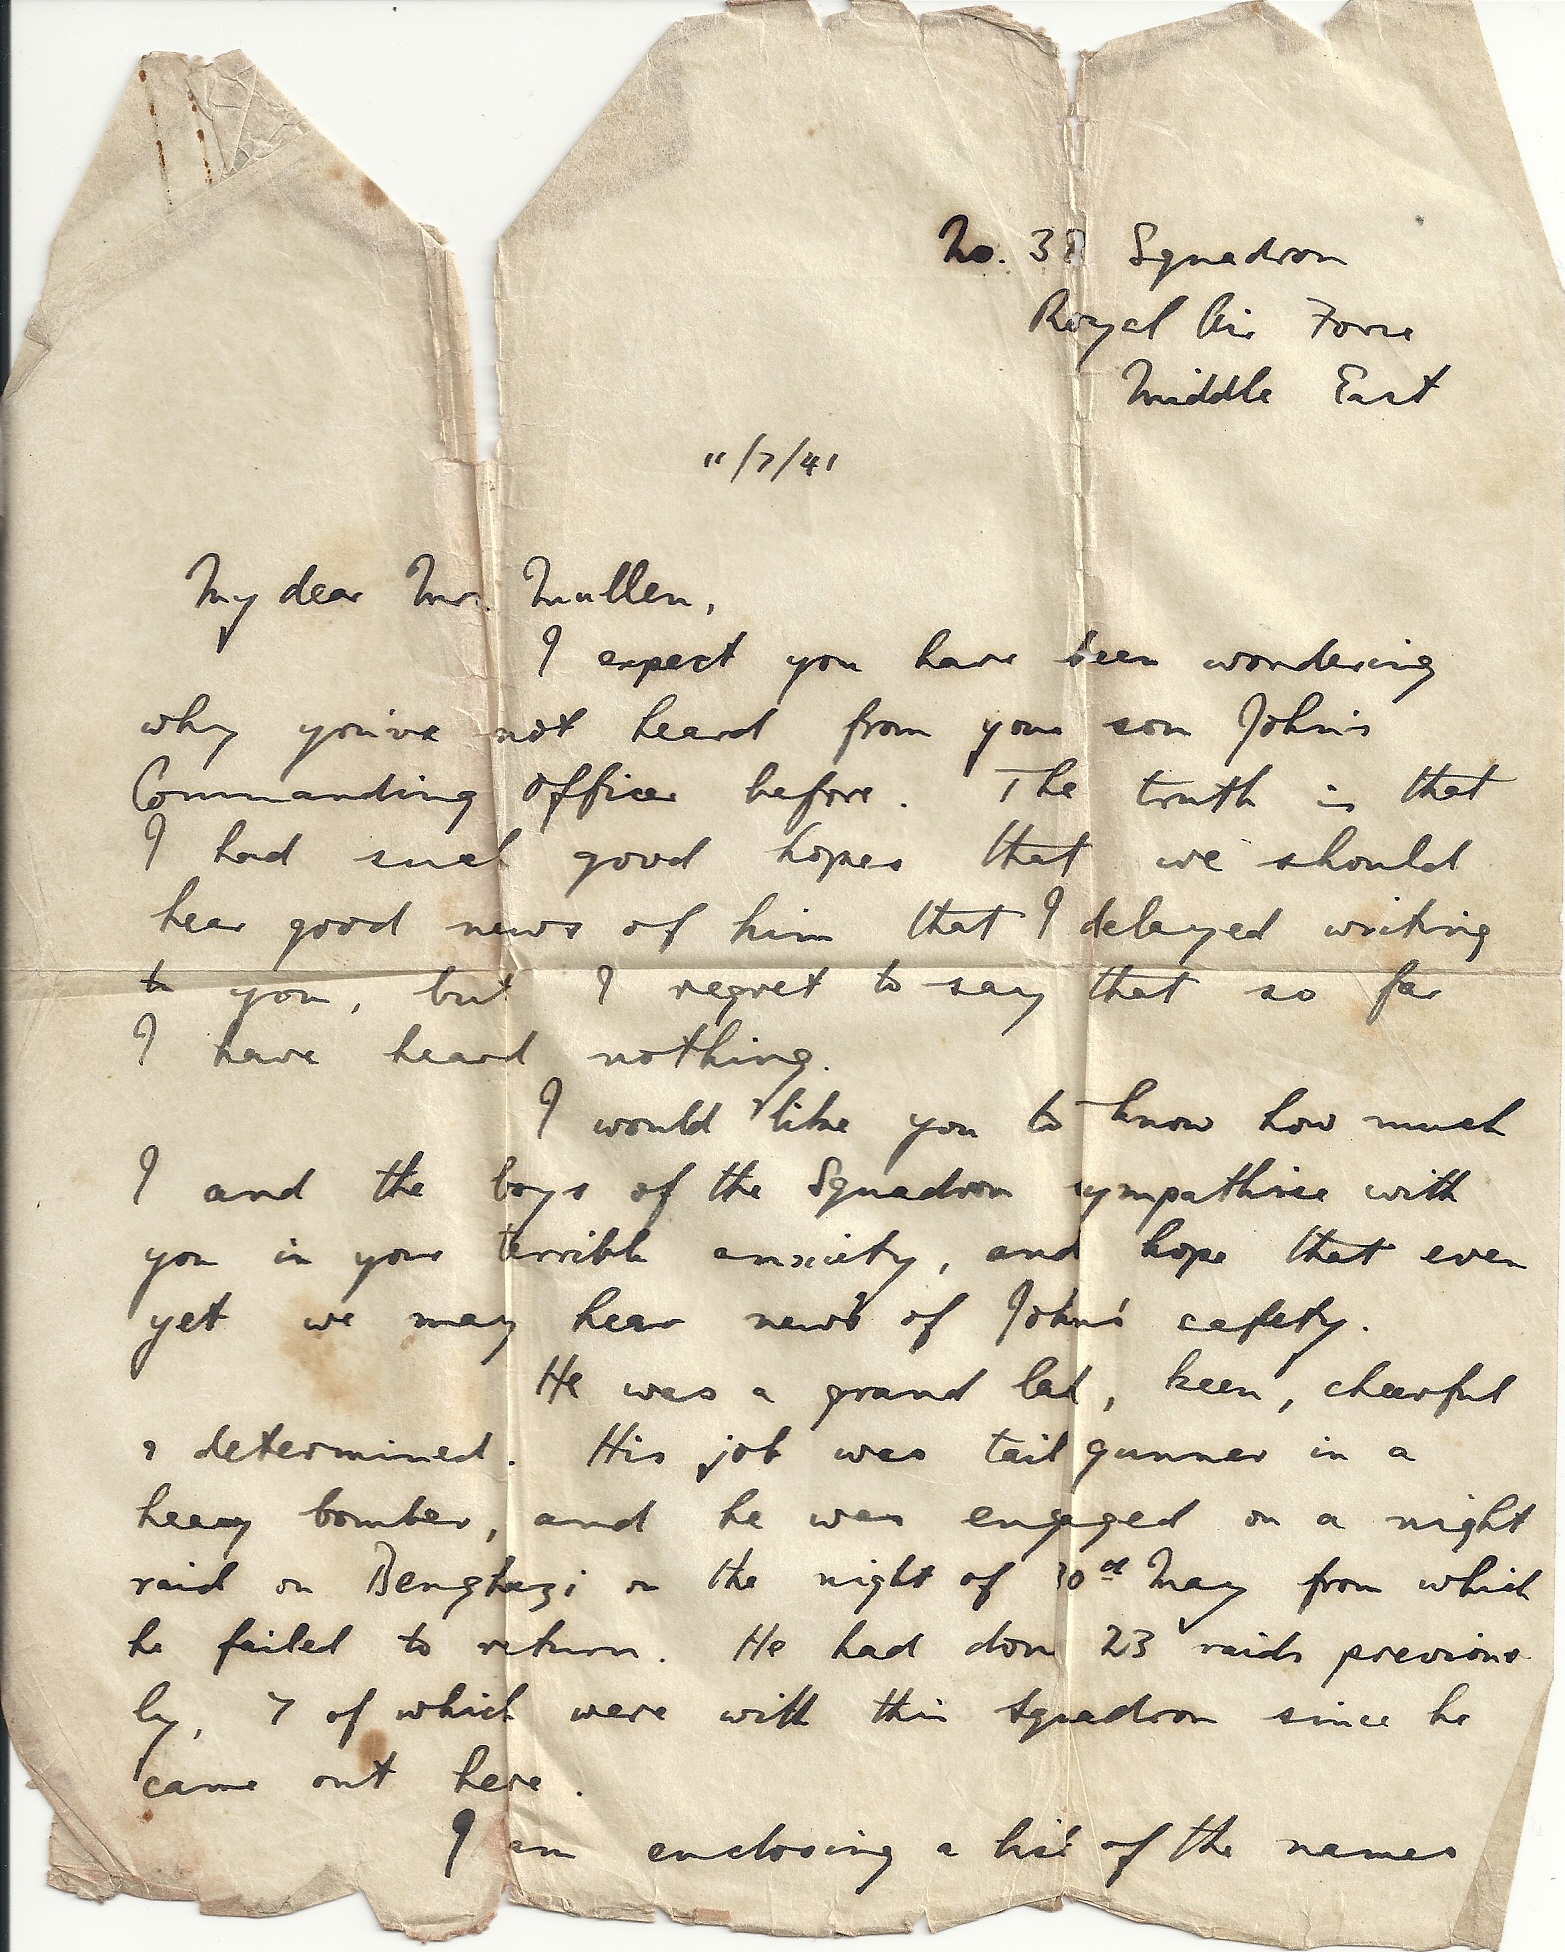 No. 38 Squadron
Royal Air Force
Middle East
11/7/41
My dear Mrs. Mullen,
I expect you have been wondering
why you've not heard from your son John's
Commanding Officer before. The truth is that
I had such good hopes that we should
hear good news of him that I delayed writing
to you, but I regret to say that so far
I have heard nothing.
I would like you to know how much
I and the boys of the Squadron sympathise with
you in your terrible anxiety, and hope that even
yet we may hear news of John's safety.
He was a grand lad, keen, cheerful
& determined. His job was tail gunner in a
heavy bomber, and he was engaged on a night
raid on Benghazi on the night of May from which
he failed to return. He had done 23 raids previous
ly, 7 of which were with this Squadron since he
came out here.
I am enclosing a list of the names